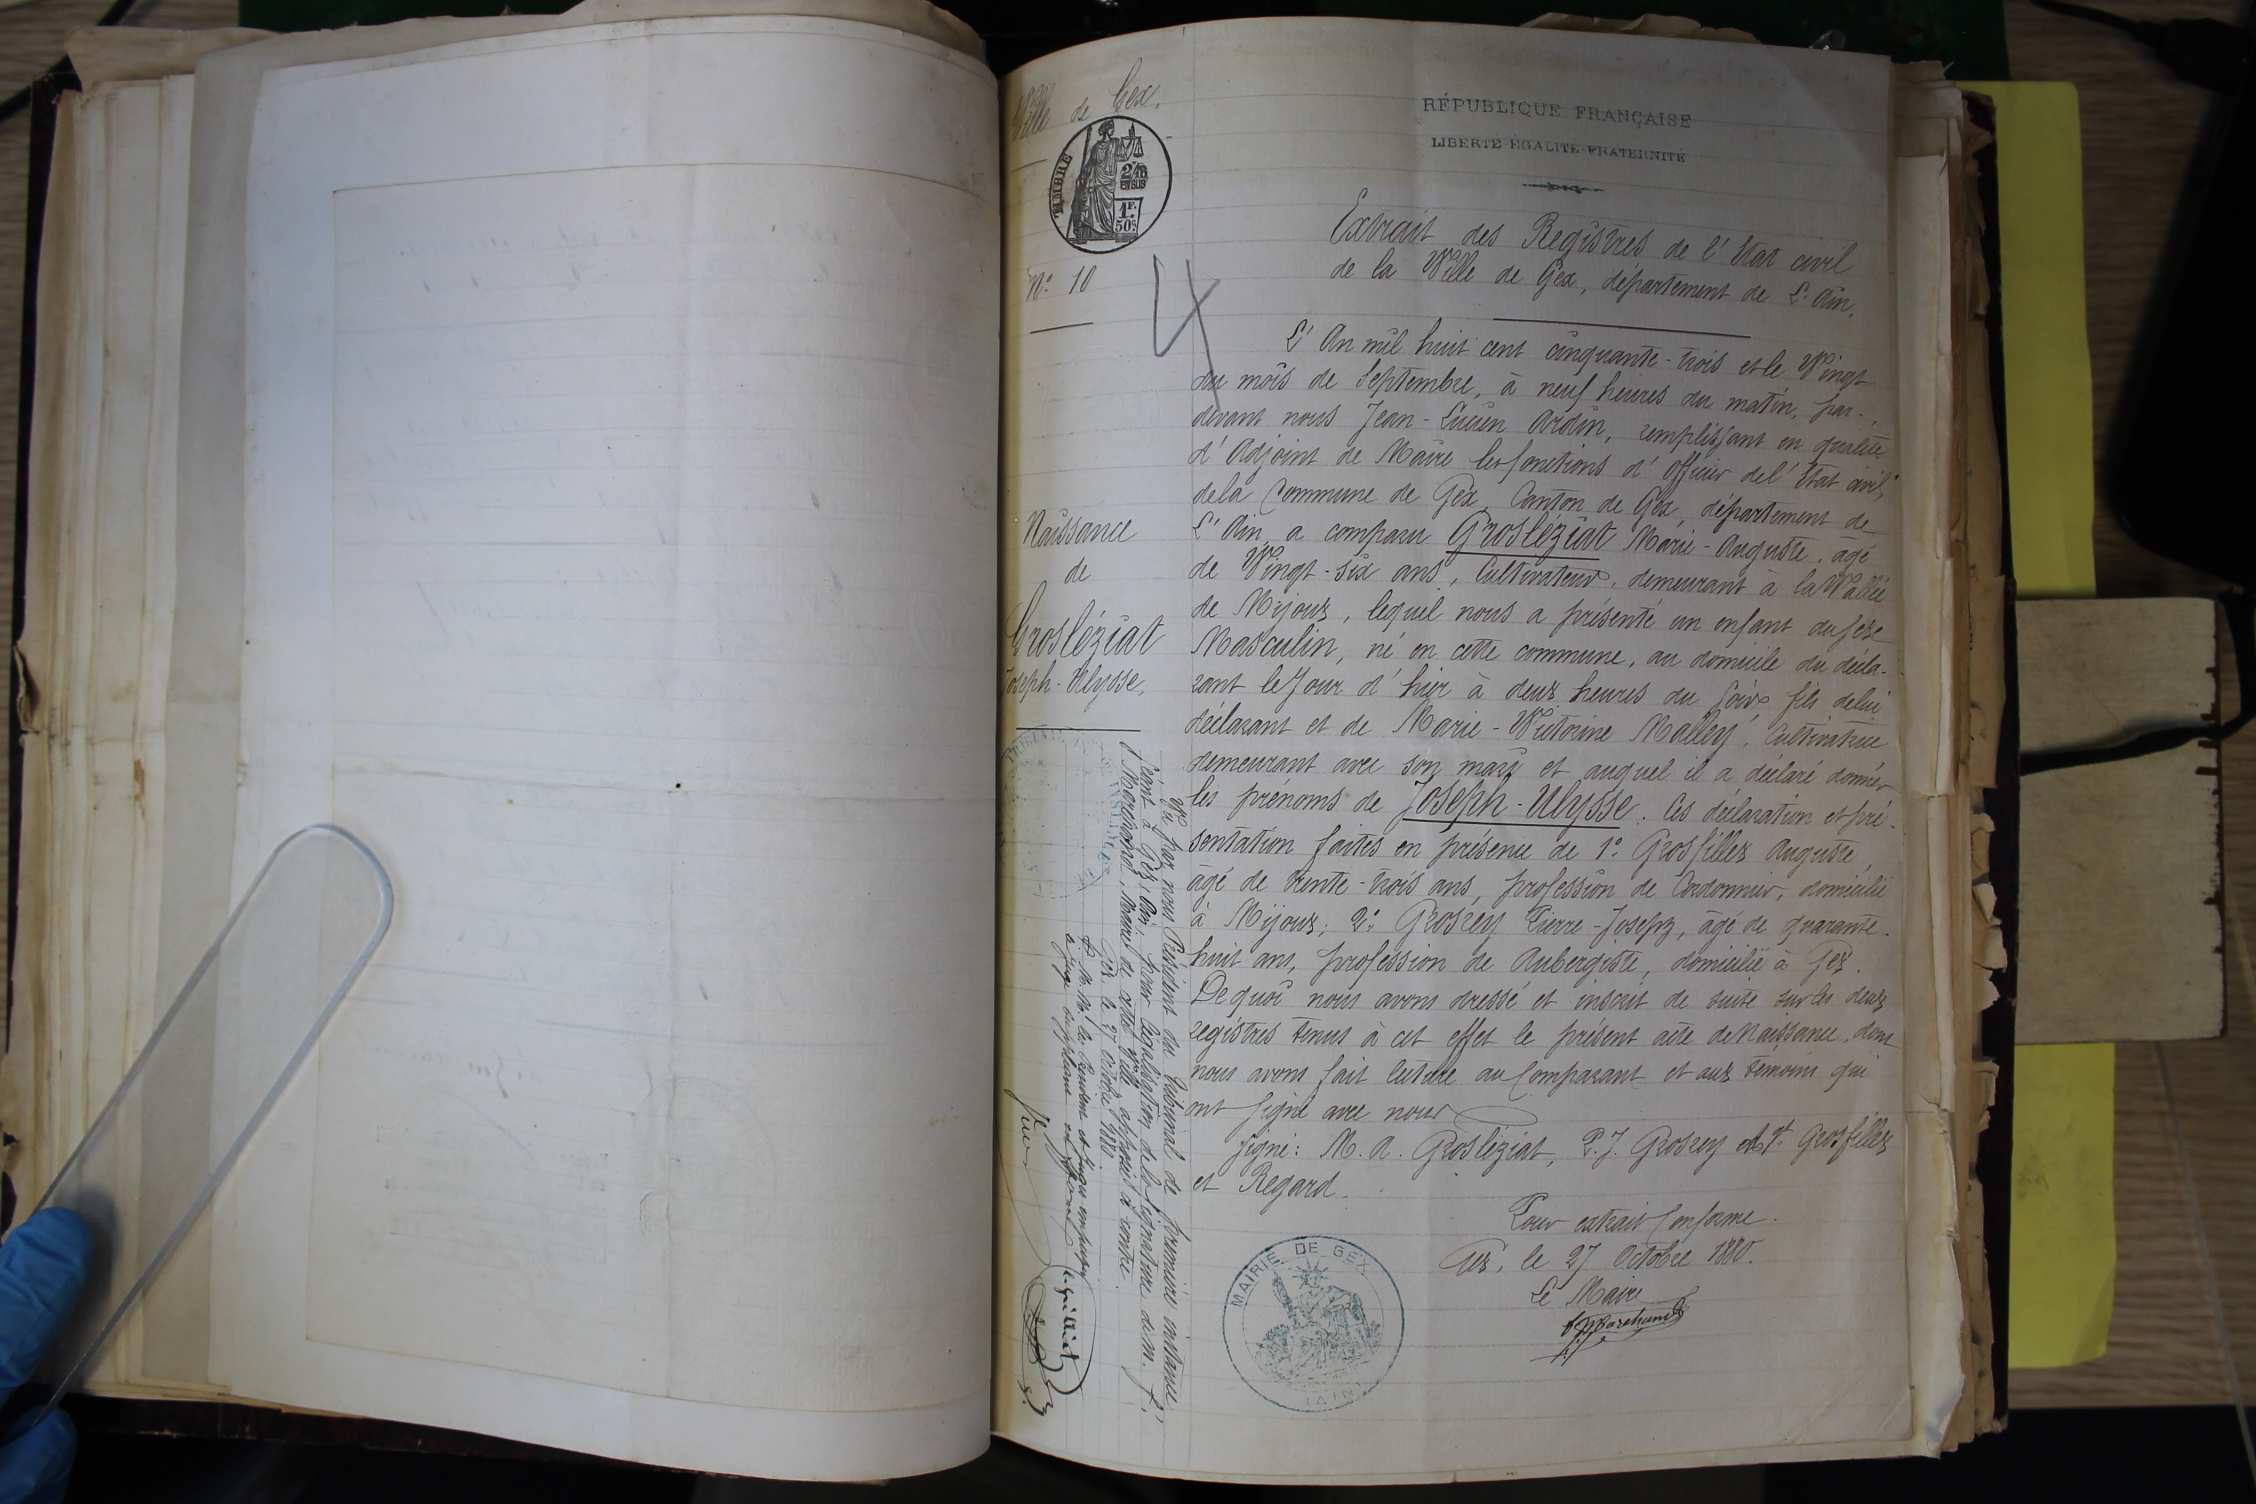 Ville de Gex.
TIMBRE
2/10
EN SUS
1F.
50c
N° 10
4
RÉPUBLIQUE FRANÇAISE
LIBERTÉ ÉGALITÉ FRATERNITÉ
Extrait des Registres de l'Etat civil
de la Ville de Gex, département de L'Ain.
L'An mil huit cent cinquante-trois et le Vingt
du mois de Septembre, à neuf heures du matin, par-
devant nous Jean-Lucien Ardin, remplissant en qualité
d'Adjoint de Maire les fonctions d'Officier de l'Etat civil,
de la Commune de Gex, Canton de Gex, département de
L'Ain, a comparu Grosléziat Marie-Auguste, âgé
de Vingt-six ans, Cultivateur, demeurant à la Vallée
de Mijoux, lequel nous a présenté un enfant du sexe
Masculin, né en cette commune, au domicile du décla-
rant le Jour d'hier à deux heures du soir fils de lui
déclarant et de Marie-Victorine Malley, Cultivatrice
demeurant avec son mary et auquel il a déclaré donner
les prénoms de Joseph-Ulysse. Ces déclaration et pré-
sentation faites en présence de 1° Grosfillex Auguste,
âgé de trente-trois ans, profession de Cordonnier, domicilié
à Mijoux; 2° Grosrey Pierre-Joseph, âgé de quarante-
huit ans, profession de Aubergiste, domicilié à Gex.
De quoi nous avons dressé et inscrit de suite sur les deux
registres tenus à cet effet le présent acte de Naissance, dont
nous avons fait lecture au Comparant et aux témoins qui
ont signé avec nous
Signé: M. A. Grosléziat, P. J. Grosrey Ate. Grosfillex
et Regard.
Pour extrait Conforme.
Gex, le 27 Octobre 1880.
Le Maire
Marchand
MAIRIE DE GEX
(AIN)
Naissance
de
Grosléziat
Joseph-Ulysse.
Vu par nous Président du Tribunal de première instance
séant à Gex, Ain, pour légalisation de la signature de M. F.
Marchand, Maire de cette Ville apposée ci contre.
Gex le 27 octobre 1880
P. M.M. le Président et Juges empêchés
le Juge suppléant